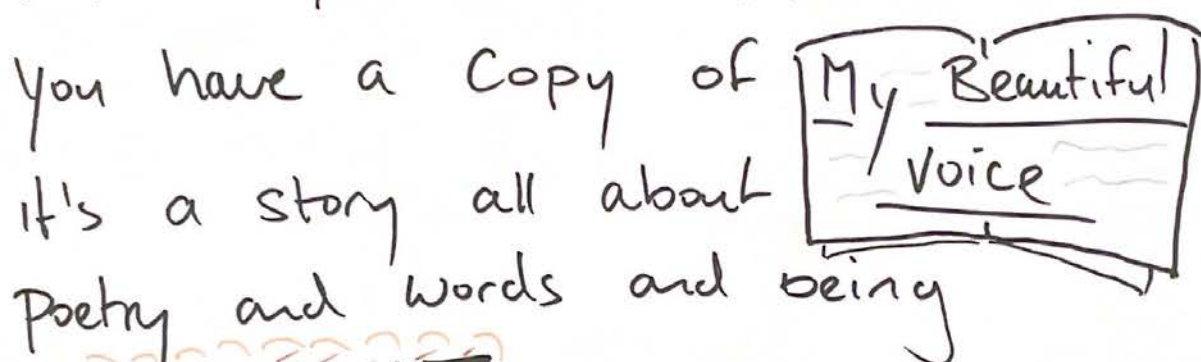 You have a Copy of My Beautiful
Voice
it's a story all about
Poetry and words and being